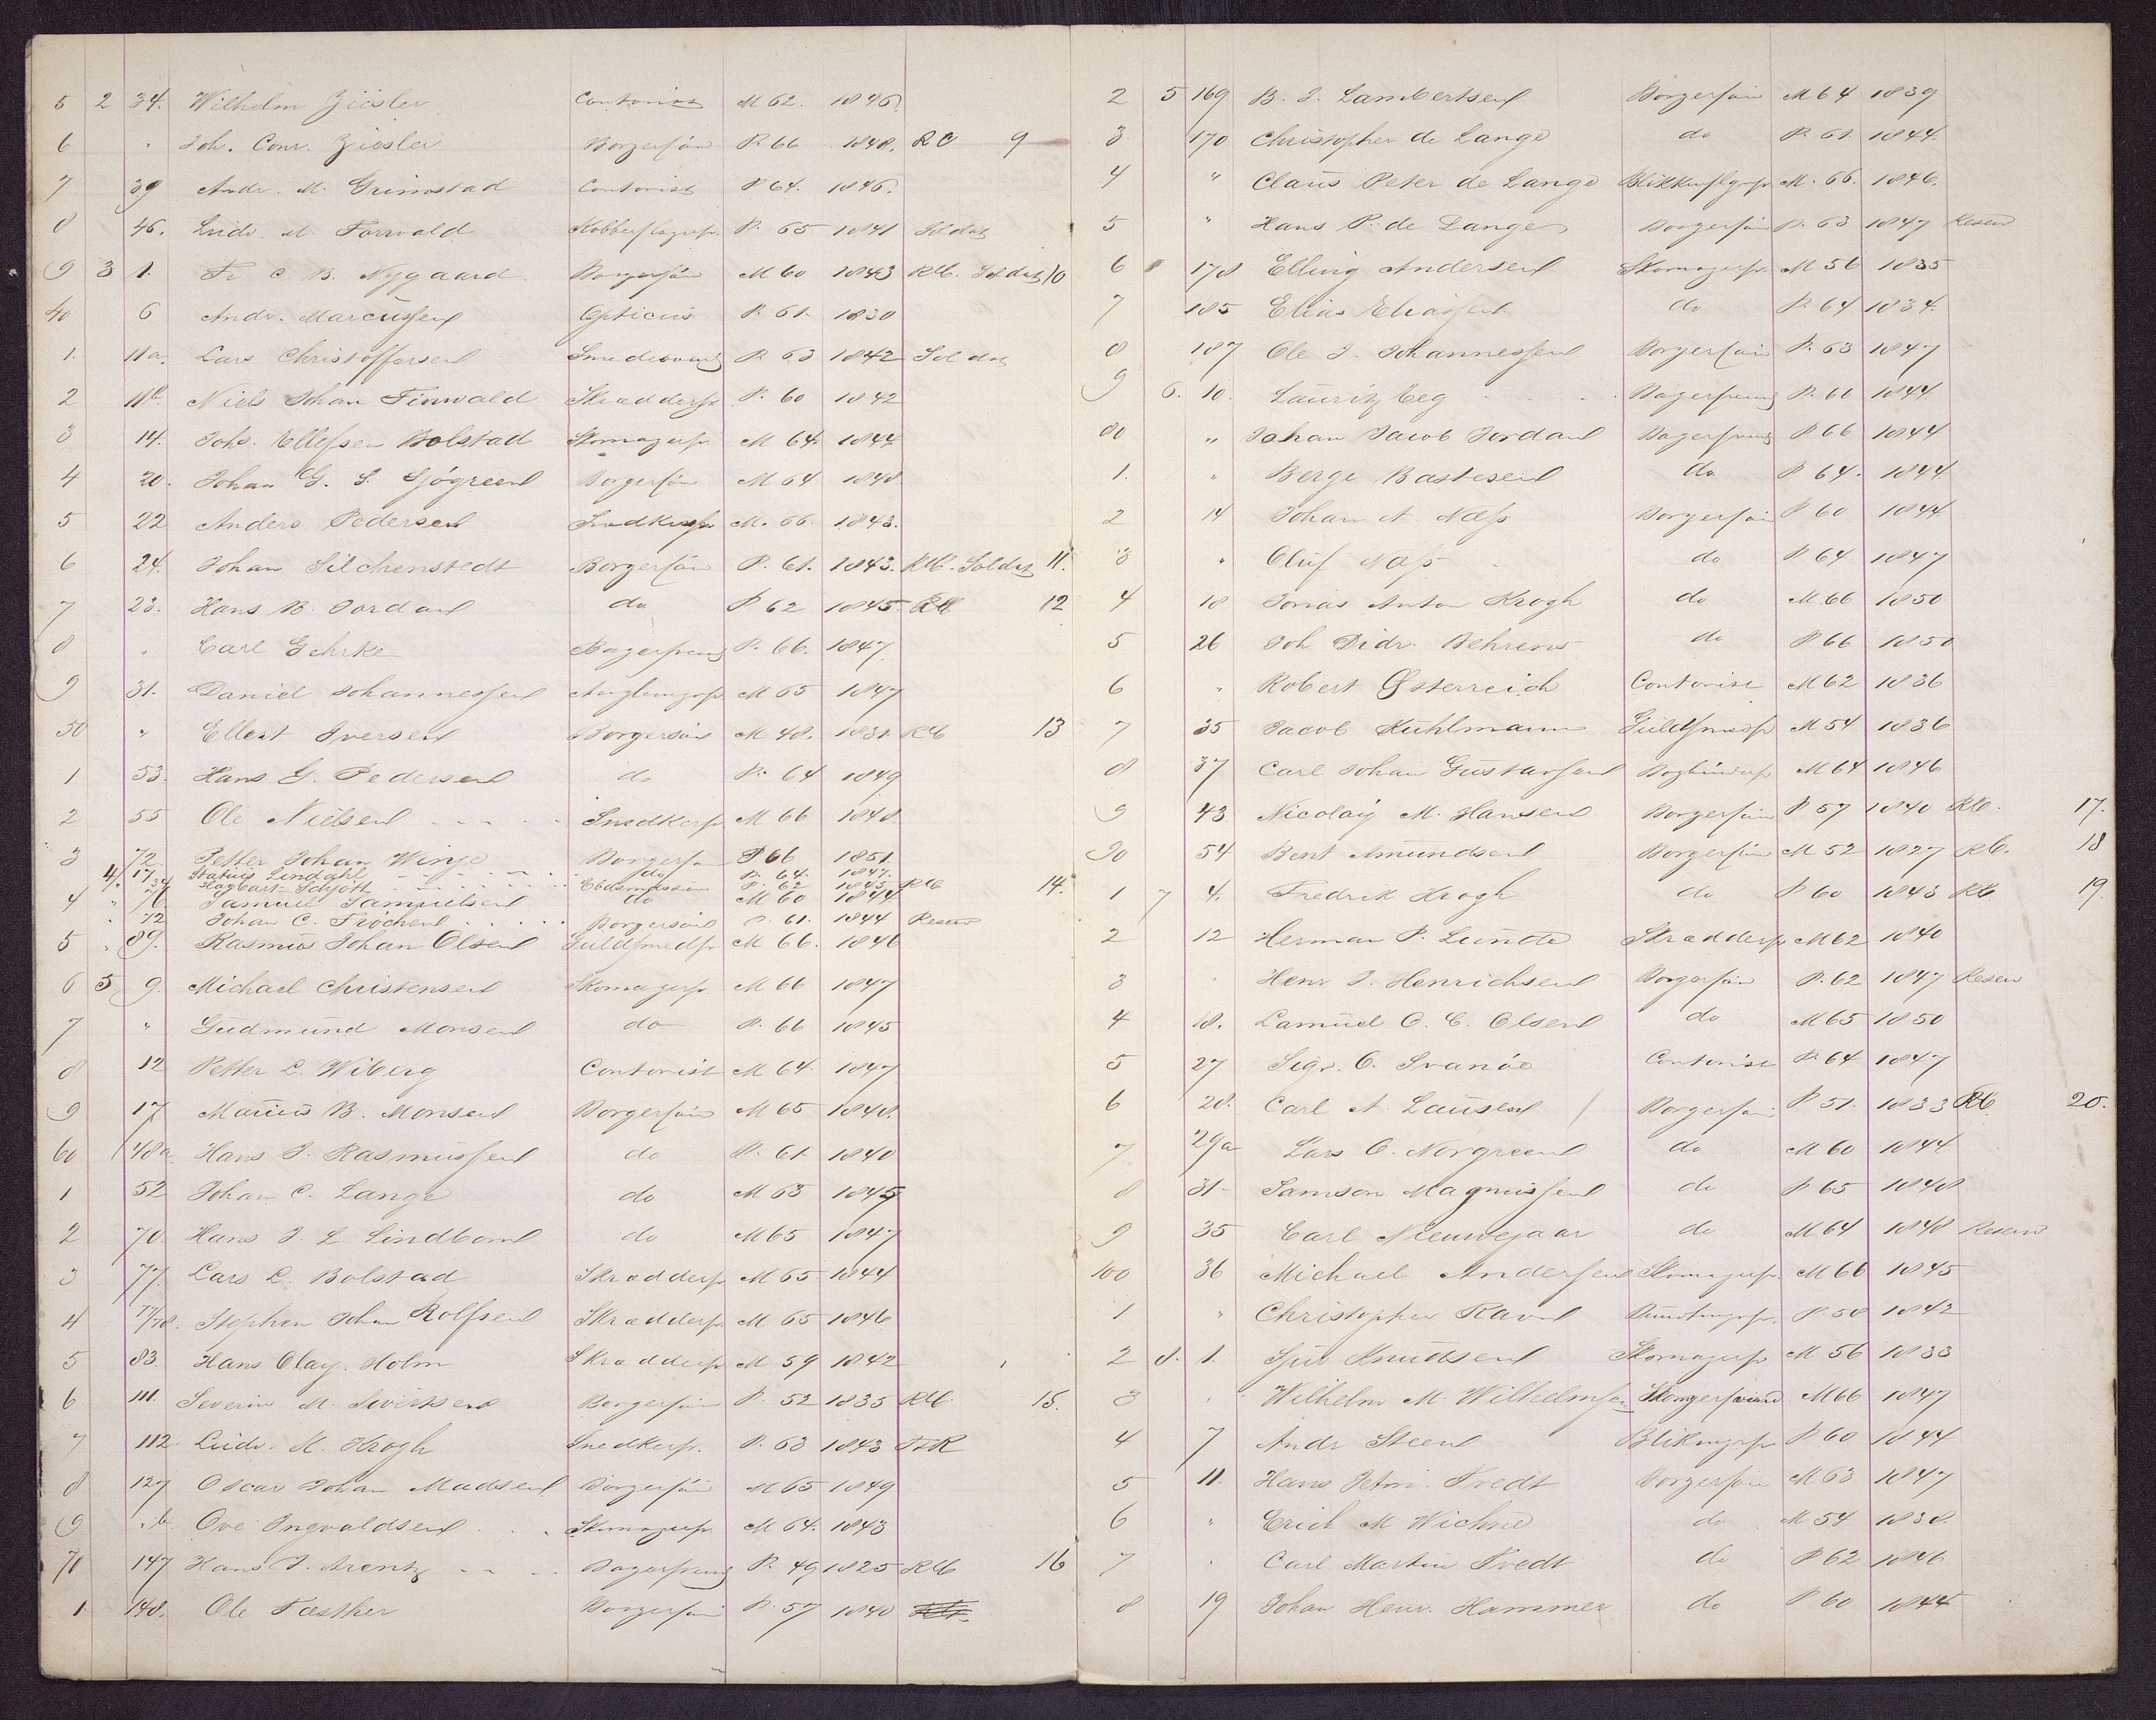 5 2 34. Wilhelm Ziesler Contorist M 62. 1846.
6 " Joh. Conr. Ziesler Borgersön P. 66 1848. RC 9
7 39 Andr. M. Grimstad Contorist P 64. 1846.
8 46. Ludv. M. Forwald Kobberslagersv. P. 65 1841 Soldat
9 3 1. Fr. C. B. Nygaard. Borgersön M 60 1843 RC. Soldat 10
40 6 Andr. Marcussen Opticus P. 61. 1830
1. 11a. Lars Christoffersen Smedesvend P. 63 1842 Soldat
2 11b. Niels Johan Finwald Skraddersv P. 60 1842
3 14. Johs. Ellefsen Bolstad Skomagersv. M 64. 1844
4 20. Johan G. S. Sjögreen Borgersön M 64 1848
5 22 Anders Pedersen Snedkersv M. 66. 1843.
6 24. Johan Silchenstedt Borgersön P. 61. 1843. RC. Soldat 11.
7 28. Hans B. Jordan do P 62 1845. RC 12
8 " Carl Gehrke Bagersvend P. 66. 1847.
9 31. Daniel Johannessen M 65 1847
50 " Ellert Iversen Borgersön M 48. 1831. RC 13
1 53. Hans G. Pedersen do P. 64 1849
2 55 Ole Nielsen Snedkersv M 66 1848
3 72. Petter Johan Winje Borgersön P 66 1851
4 17 Statius Lindahl do P. 64. 1847.
" 34 Hagbart Schjött P. 62 1845 RC 14.
4 " 70 Samuel Samuelsen do M 60 1844
" 72 Johan C. Fröchen Borgersön P. 61. 1844 Reserv
5 " 89. Rasmus Johan Olsen Guldsmedsv. M 66. 1846
6 5 9. Michael Christensen Skomagersv. M 66 1847
7 " Gudmund Monsen do P. 66 1845
8 12 Petter L. Wiberg Contorist M 64. 1847
9 17 Marius B. Monsen Borgersön M 65 1848.
60 48a Hans J. Rasmussen do P. 61. 1840
1 52 Johan C. Lange do M 63 1845
2 70. Hans J. L. Lindbom do M 65 1847
3 77. Lars L. Bolstad Skraddersv M 65. 1844
4 77/78. Stephen Johan Rolfsen Skraddersv. M 65 1846
5 83. Hans Olay. Holm Skraddersv M 59 1842
6 111. Severin M. Sivertsen Borgersön P. 52 1835 RC 15.
7 112. Ludv. M. Krogh Snedkersv. P. 63 1843
8 127 Oscar Johan Madsen Borgersön M 65 1849
9 " b. Ove Ingvaldsen Skomagersv. M 64. 1843
70 147 Hans J. Arentz Bagersvend P. 49 1825 RC 16
1. 148. Ole Fæsther Borgersön P. 57 1840
2 5 169 B. J. Lambertsen Borgersön M 64 1839
3 170 Christopher de Lange do P. 61. 1844.
4 " Claus Peter de Lange Blikkenslgrsv M. 66. 1846.
5 " Hans P. de Lange Borgersön P. 63 1847 Reserv
6 178 Elling Andersen Skomagersv. M 56 1835
7 185 Elias Eliassen do P. 64 1834.
8 187 Ole J. Johannessen Borgersön P. 63 1847
9 6. 10. Lauritz Eeg Bagersvend P. 60 1844
80 " Johan Jacob Jordan Bagersvend P 66 1844
1. " Berge Bastesen do P 64. 1844
2 14 Johan A. Næss Borgersön P 60 1844
3 " Oluf Næss do P 64 1847
4 18 Jonas Anton Krogh do M 66 1850
5 26 Joh Didr. Behrens do P 66 1850
6 " Robert Østerreich Contorist M 62 1836
7 35 Jacob Kuhlmann Guldsmedsv M 54 1836
8 37 Carl Johan Gustavsen Bogbindersv M 64 1846
9 43. Nicolay M. Hansen Borgersön P 57 1840 RC. 17.
90 54 Bent Amundsen Borgersön M 52 1827 RC. 18
1 7 4. Fredrik Krogh do P 60 1843 RC 19.
2 12 Herman P. Lunde Skraddersv M 62 1840
3 " Henr J. Henrichsen Borgersön P. 62 1847 Reserv
4 18. Lamuel O. C. Olsen do M 65 1850
5 27 Segr. O. Svanöe Contorist P. 64 1847
6 28. Carl A. Lausen Borgersön P 51. 1833 RC 20.
7 29a Lars O. Norgreen do M 60 1844
8 31 Samson Magnussen do P 65 1848
9 35 Carl Nieuwejaar do M 64 1848 Reserv
100 36 Michael Andersen Skomagersv. M 66 1845
1 " Christopher Ravn P. 58 1842
2 8. 1. Sjur Knudsen Skomagersv M 56 1833
3 " Wilhelm M. Wilhelmsen M 66 1847
4 7 Andr Steen P 60 1844
5 11. Hans Petri. Tvedt Borgersön M 63 1847
6 " Erich M Wichne do M 54 1838.
7 " Carl Martin Tvedt do P 62 1846
8 19 Johan Henr. Hammer do P 60 1844